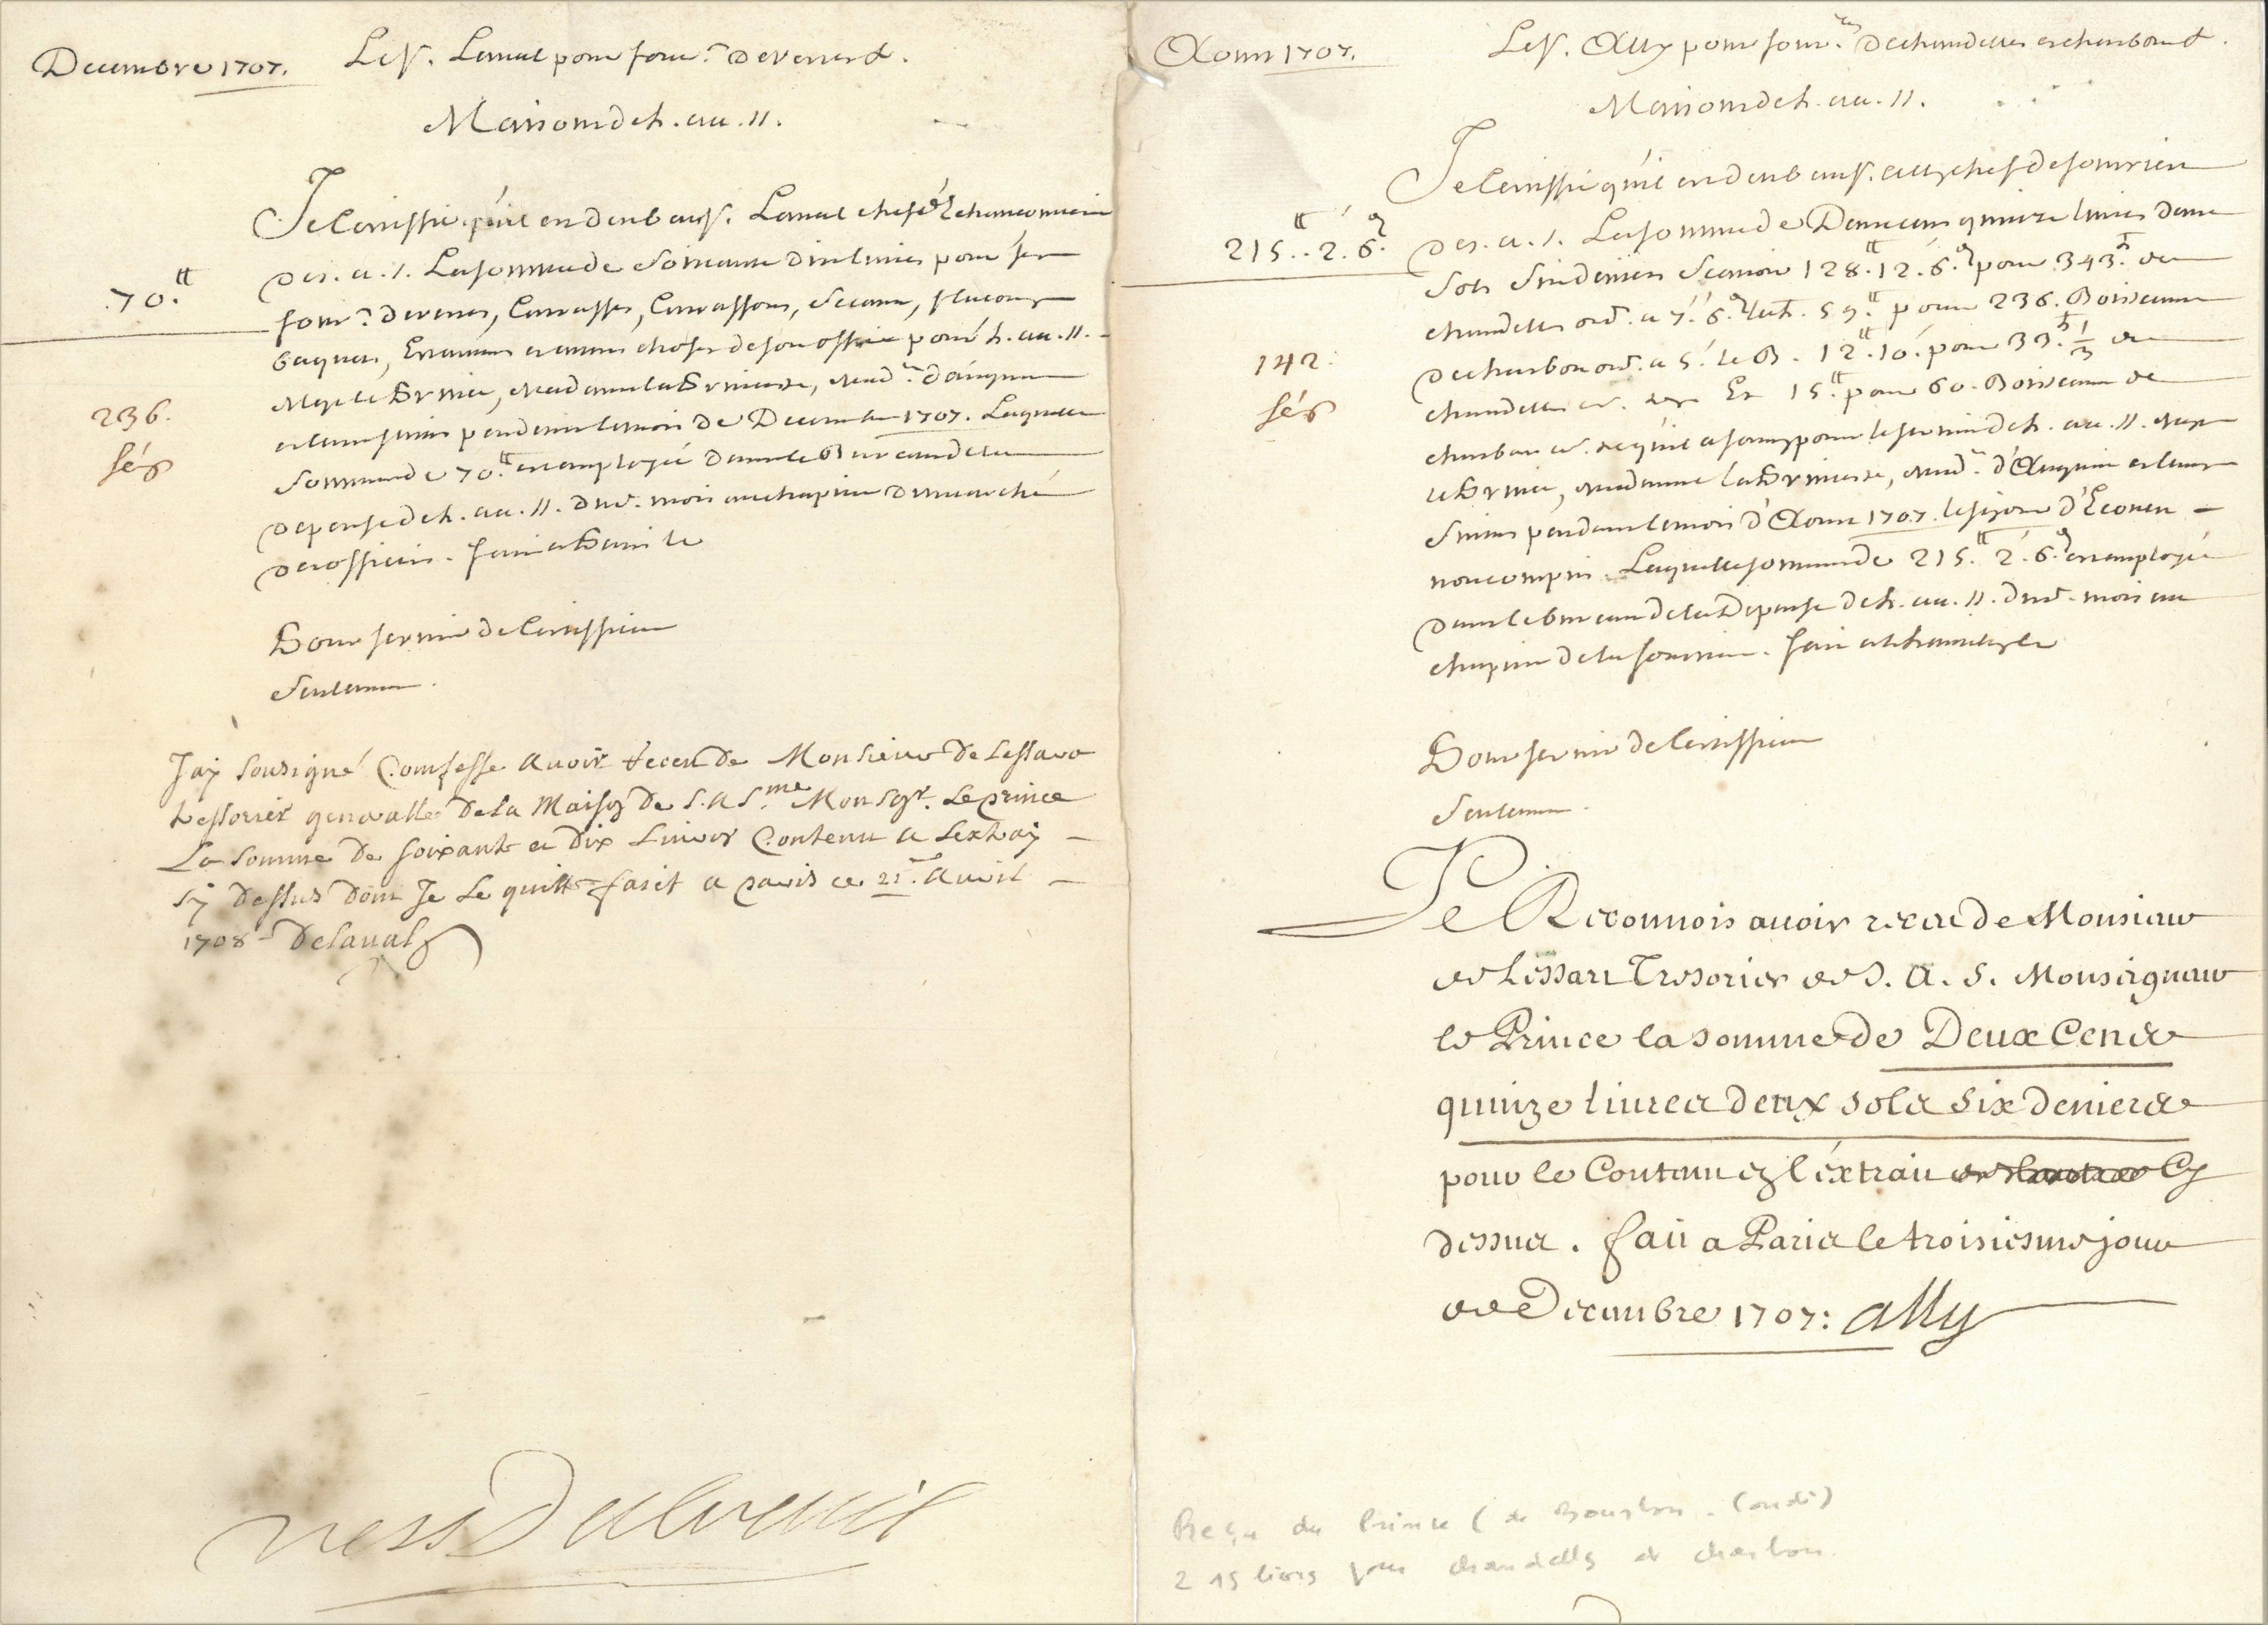 Decembre 1707.
Le Sr. Laval pour four.re de verres &.
Maison de L. AA. SS.
Je certiffie qu'il est deub au Sr. Laval chef d'Echanconnerie
de S. A. S. La somme de Soixante dix livres pour ses
70.tt
four.res de verres, Carraffes, Carraffons, Sceaux, flacons,
baquets, et autres choses de son office pour L. AA. SS.
Mgr. le Prince, Madame la Princesse, Mad.e d'anguien
et leur suitte pendant le mois de Decembre 1707. Laquelle
236.
somme de 70.tt est employée dans le Bureau de la
depense de L. AA. SS. dud. mois au chapitre du marché
des officiers. fait a Paris le
Pour servir de Certifficat
Seulement.
Jay Sousigné Confesse avoir receu de Monsieur de Lessart
tessorier generalle de la Maison de S. A S.me Mon Sgr. Le prince
La Somme de soixante et dix Livres Contenu a Lextrai
sy dessus dont Je Le quitte fasit a paris ce 21. Avril
1708 Delaval
Aoust 1707.
Le Sr. Ally pour four.res de chandelles et charbon &.
Maison de L. AA. SS.
Je certiffie qu'il est deub au Sr. Ally chef de fourriere
215.tt 2.s 6.d
de S. A. S. La somme de Deux cens quinze livres deux
Sols Six deniers Scavoir 128.tt 12.s 6.d pour 343.tt de
chandelles ord. a 7.s 6.d la lt. 59.tt pour 236. Boisseaux
142.
de charbon ord. a 5.s le B. 12.tt 10.s pour 33.tt 1/3 de
chandelles Et 15.tt pour 60. Boisseaux de
charbon qu'il a fourny pour le service de L. AA. SS. Mgr
le Prince, Madame la Princesse, Mad.e d'Anguien et leurs
Suittes pendant le mois d'Aoust 1707. le sejour d'Ecouen
non compris. Laquelle somme de 215.tt 2.s 6.d est employée
dans le bureau de la Depense de L. AA. SS. dud. mois au
chapitre de la fourriere. fait a Chantilly le
Pour servir de Certifficat
Seulement.
Je Reconnois avoir receu de Monsieur
de Lessart Tresorier de S. A. S. Monseigneur
le Prince la somme de Deux Cens
quinze livres deux sols six deniers
pour le Contenu en l'éxtrait Cy
dessus. fait a Paris le troisiesme jour
de Decembre 1707: Ally
Reçu du Prince (de Bourbon. Condé)
215 livres pour chandelles et charbon.